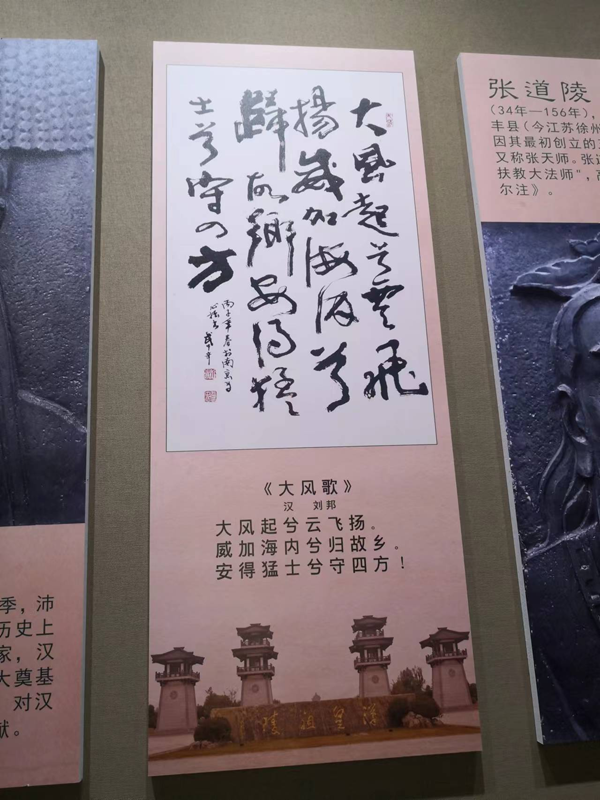 大風起兮雲飛
揚威加海内兮
歸故鄉安得猛
士兮守四方
丙子年春於南京
武中奇
《大风歌》
汉 刘邦
大风起兮云飞扬。
威加海内兮归故乡。
安得猛士兮守四方！
漢皇祖陵
季，沛
历史上
家，汉
大奠基
对汉
献。
张道陵
（34年—156年），
丰县（今江苏徐州
因其最初创立的
又称张天师。张道
扶教大法师”，
尔注》。